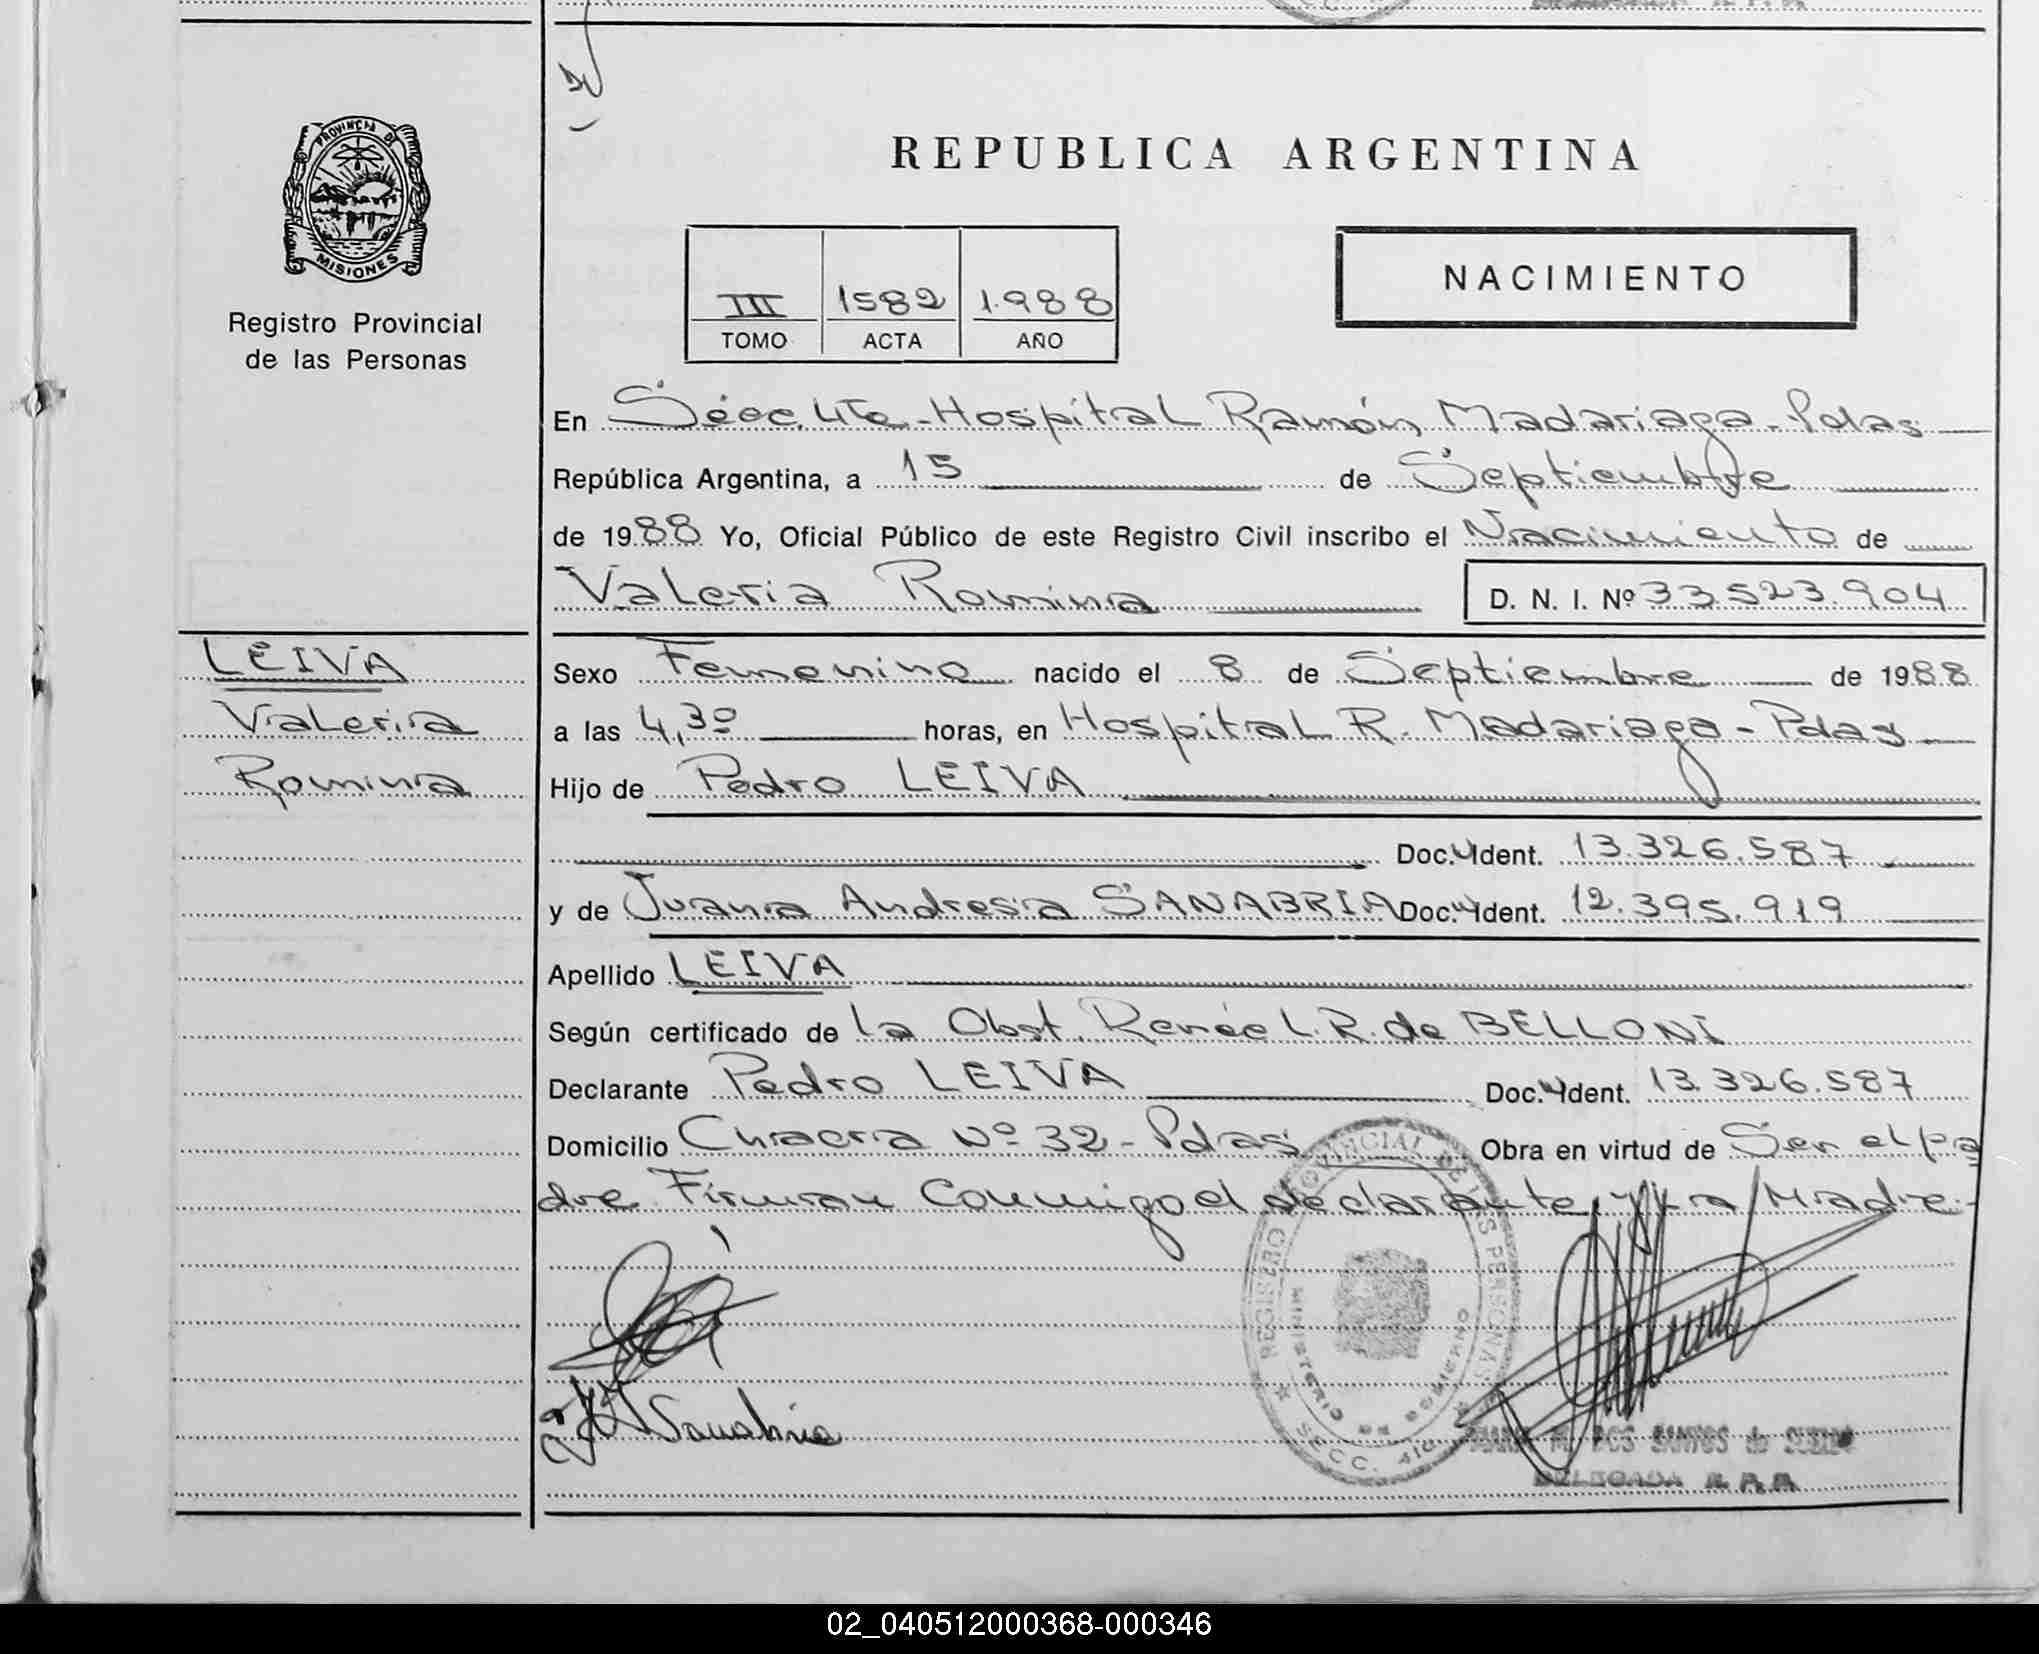 PROVINCIA DE
MISIONES
Registro Provincial
de las Personas
REPUBLICA ARGENTINA
III 1582 1.988
TOMO ACTA AÑO
NACIMIENTO
En Sécc. 4ta-Hospital Ramón Madariaga-Pdas
República Argentina, a 15 de Septiembre
de 1988 Yo, Oficial Público de este Registro Civil inscribo el Nacimiento de
Valeria Romina D. N. I. Nº 33.523.904
LEIVA
Valeria
Romina
Sexo Femenino nacido el 8 de Septiembre de 1988
a las 4,30 horas, en Hospital R. Madariaga - Pdas
Hijo de Pedro LEIVA
Doc. Ident. 13.326.587
y de Juana Andresa SANABRIA Doc. Ident. 12.395.919
Apellido LEIVA
Según certificado de la Obst. Renée L. R. de BELLONI
Declarante Pedro LEIVA Doc. Ident. 13.326.587
Domicilio Chacra Nº 32 - Pdas Obra en virtud de Ser el pa
dre. Firman Conmigo el declarante y la Madre.-
REGISTRO PROVINCIAL DE LAS PERSONAS
MINISTERIO DE GOBIERNO
SECC. 4ta
Sanabria
M. DOS SANTOS de
DELEGADA R. P. P.
02_040512000368-000346